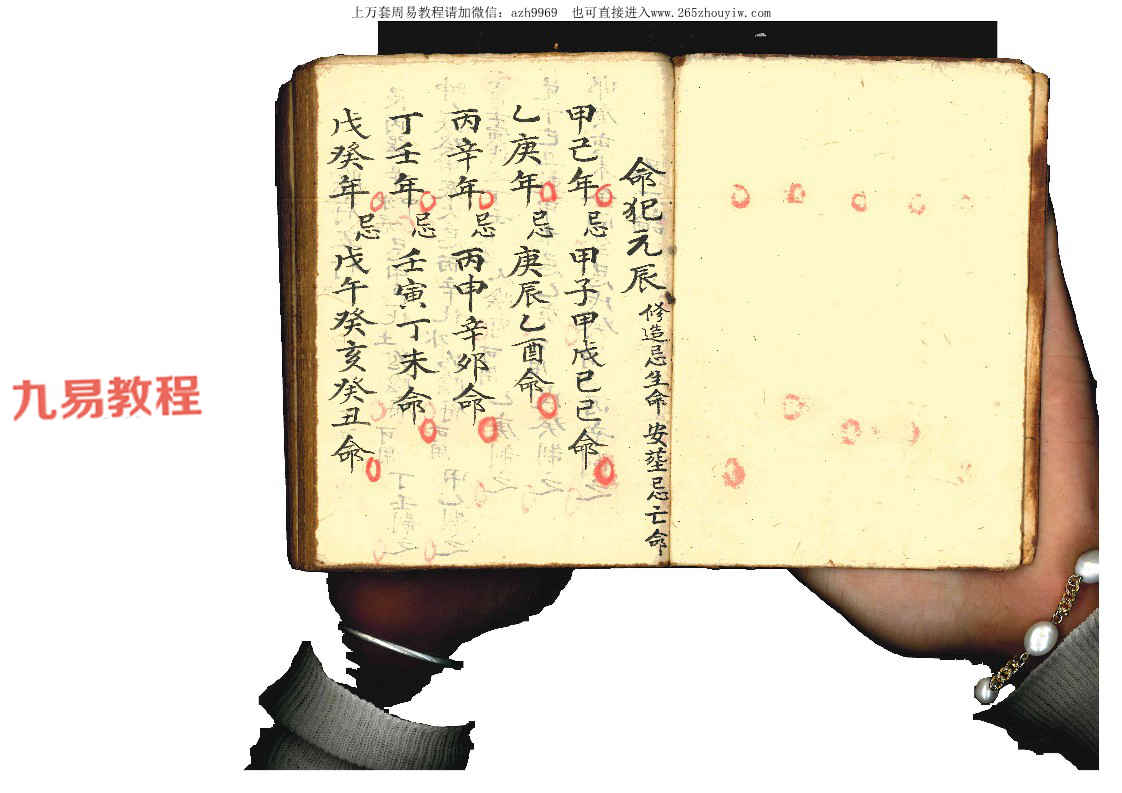 上万套周易教程请加微信：azh9969 也可直接进入www.265zhouyiw.com
命犯元辰 修造忌生命 安塟忌亡命
甲己年 忌 甲子甲戌己巳命
乙庚年 忌 庚辰乙酉命
丙辛年 忌 丙申辛卯命
丁壬年 忌 壬寅丁未命
戊癸年 忌 戊午癸亥癸丑命
九易教程